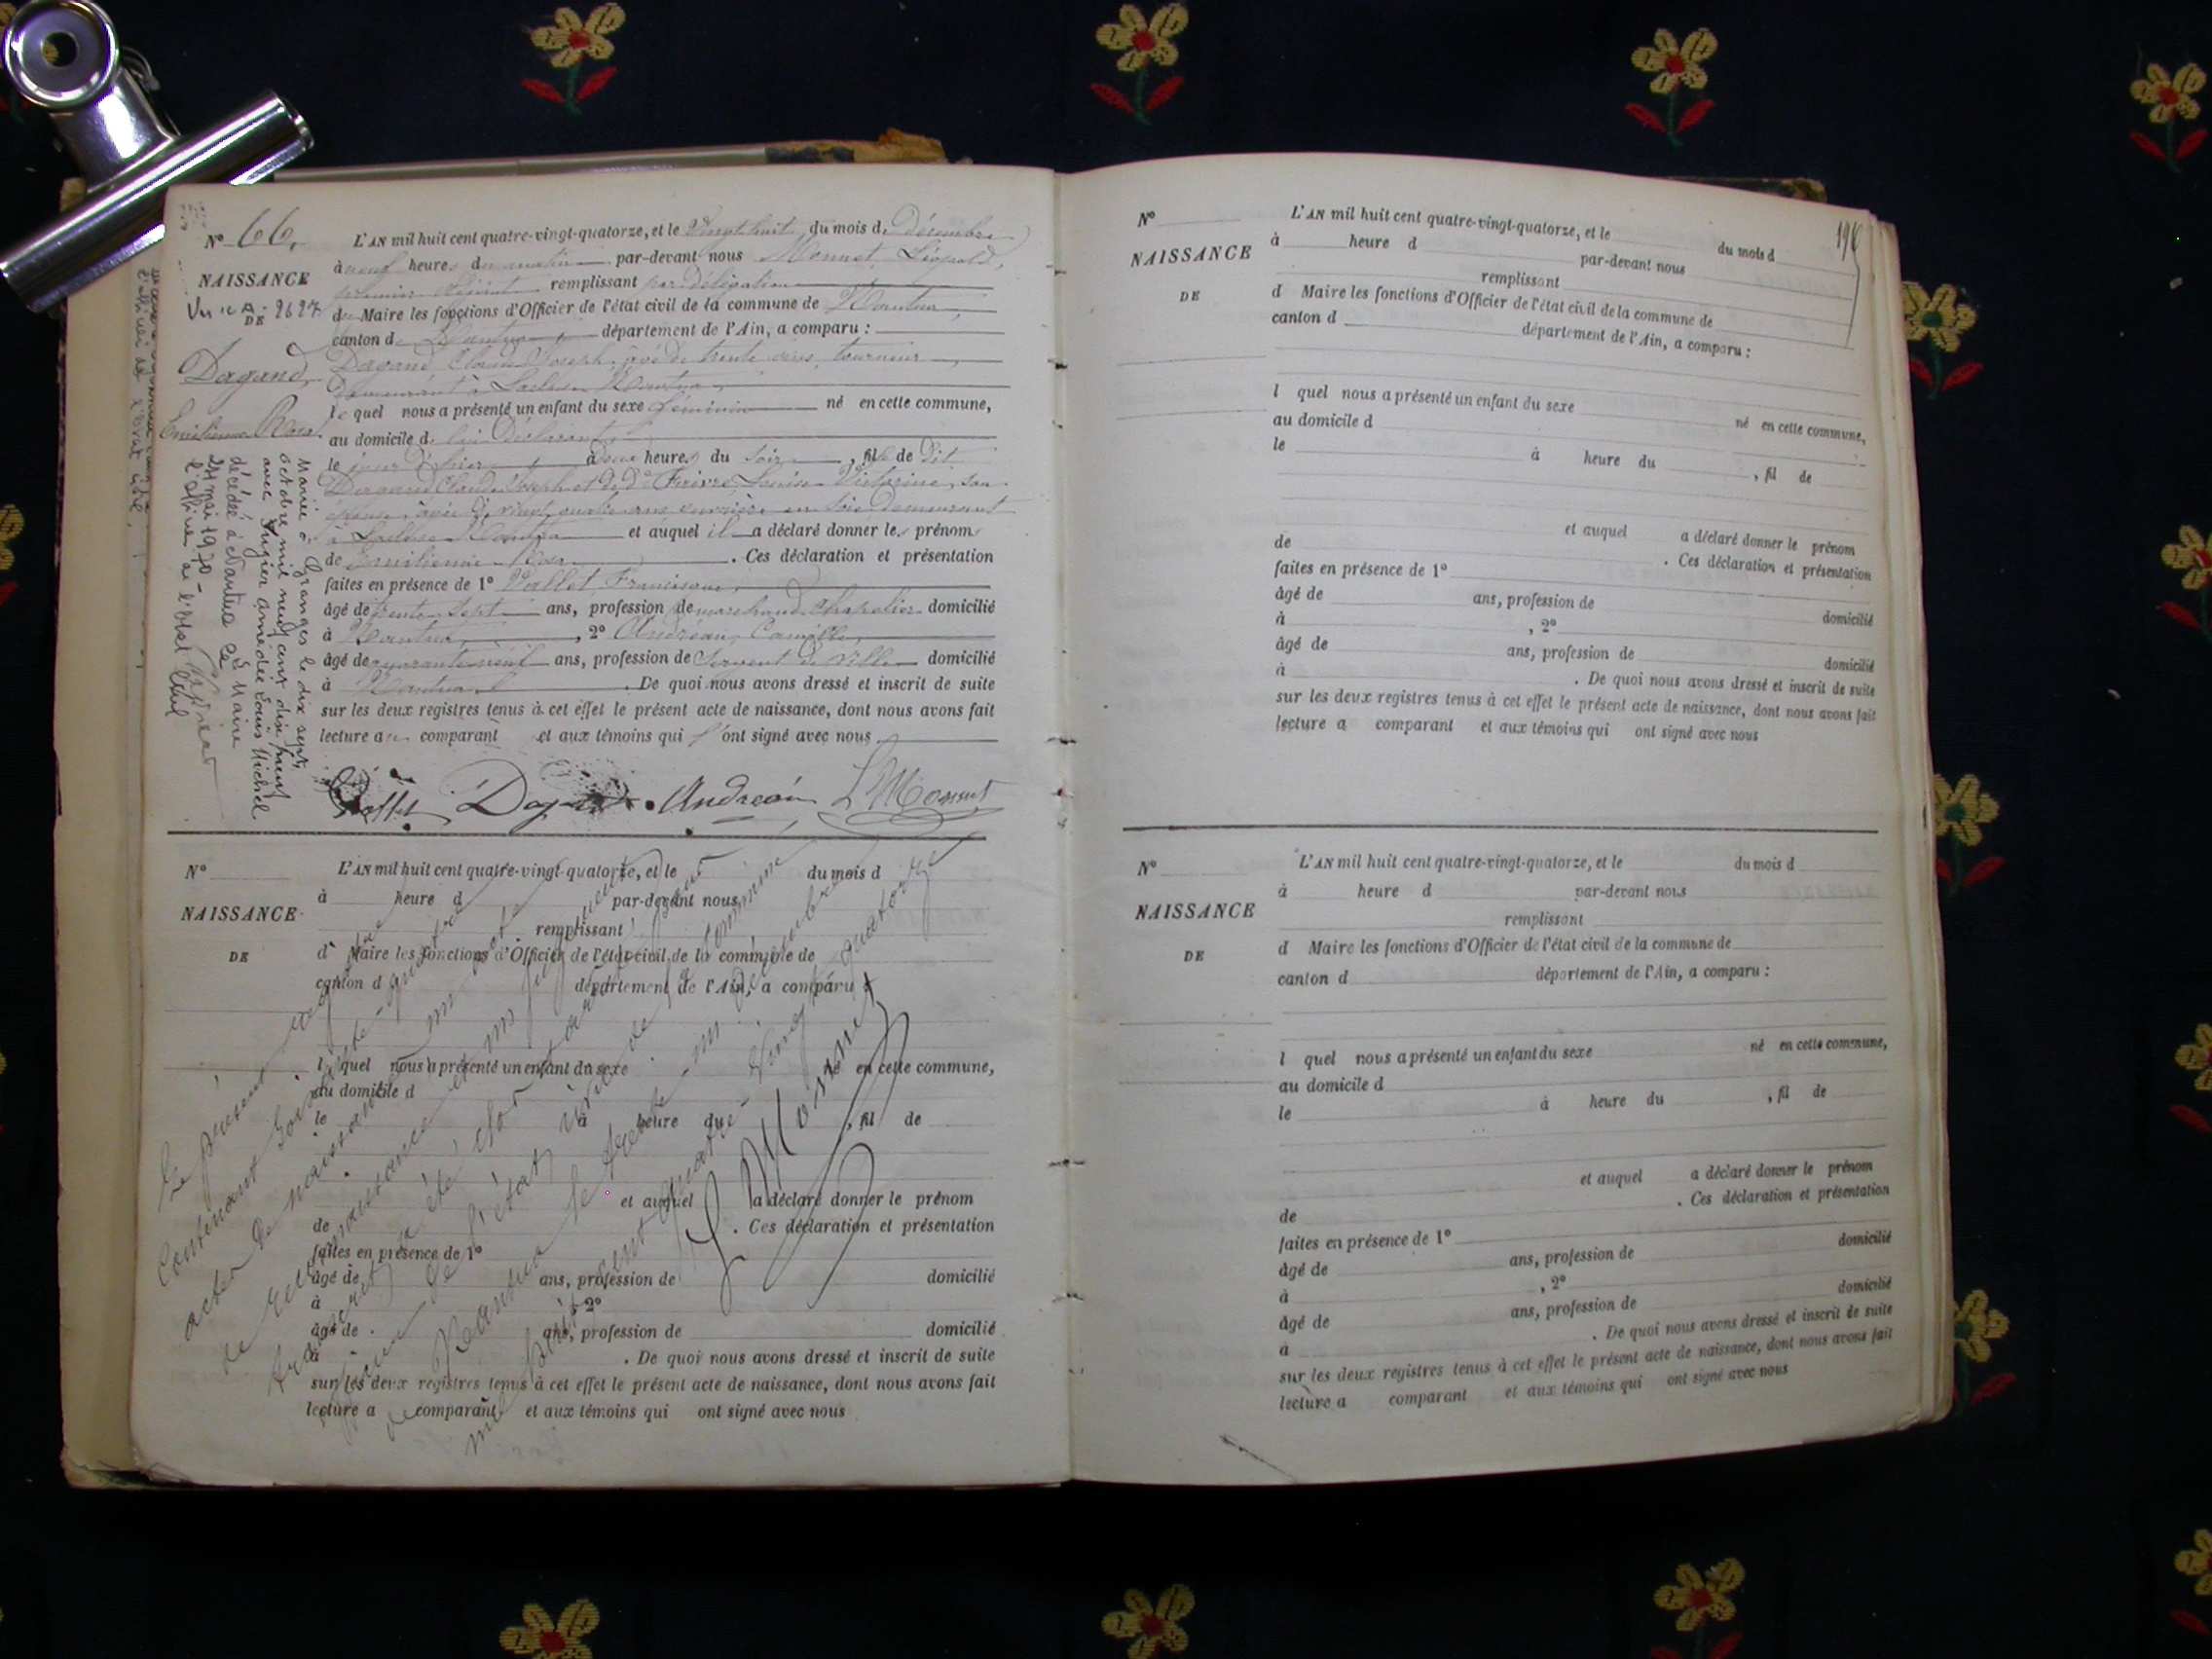 N° 66.
NAISSANCE
DE
Dagand,
Emilienne Rosa.
L'AN mil huit cent quatre-vingt-quatorze, et le Vingt huit du mois de Décembre
à neuf heures du matin par-devant nous Monnet, Léopold,
premier adjoint remplissant par délégation
du Maire les fonctions d'Officier de l'état civil de la commune de Nantua,
canton de Nantua, département de l'Ain, a comparu :
Dagand, Claude Joseph, âgé de trente ans, tourneur,
demeurant à Nantua,
lequel nous a présenté un enfant du sexe féminin né en cette commune,
au domicile de lui Déclarant,
le jour d'hier, à heures du soir, fille de dit
Dagand Claude Joseph et de Louise Victorine, son
épouse, âgée de vingt quatre ans ouvrière en soie demeurant
à Nantua et auquel il a déclaré donner les prénoms
de Emilienne Rosa. Ces déclaration et présentation
faites en présence de 1° Vallet, Francisque,
âgé de trente sept ans, profession de marchand chapelier domicilié
à Nantua, 2° Andréan, Camille,
âgé de quarante neuf ans, profession de Sergent de Ville domicilié
à Nantua. De quoi nous avons dressé et inscrit de suite
sur les deux registres tenus à cet effet le présent acte de naissance, dont nous avons fait
lecture au comparant et aux témoins qui l'ont signé avec nous
Vallet Dagand Andréan L Monnet
Mariée à Granges le dix sept
octobre mil neuf cent dix huit
avec Augier Amédée Louis Michel
décédée à Nantua le
24 mai 1970 - Le Maire
l'officier de l'état civil
N°
NAISSANCE
DE
L'AN mil huit cent quatre-vingt-quatorze, et le du mois d
à heure d par-devant nous
remplissant
d Maire les fonctions d'Officier de l'état civil de la commune de
canton d département de l'Ain, a comparu :
l quel nous a présenté un enfant du sexe né en cette commune,
au domicile d
le à heure du , fil de
et auquel a déclaré donner le prénom
de . Ces déclaration et présentation
faites en présence de 1°
âgé de ans, profession de domicilié
à , 2°
âgé de ans, profession de domicilié
à . De quoi nous avons dressé et inscrit de suite
sur les deux registres tenus à cet effet le présent acte de naissance, dont nous avons fait
lecture a comparant et aux témoins qui ont signé avec nous
Le présent registre
Contenant Soixante-quatre
actes de naissance un acte
de reconnaissance et un jugement
transcrit, a été clos par nous
officier de l'état civil de la commune
de Nantua le trente un décembre
mil huit cent quatre-vingt quatorze
L Monnet
196
N°
NAISSANCE
DE
L'AN mil huit cent quatre-vingt-quatorze, et le du mois d
à heure d par-devant nous
remplissant
d Maire les fonctions d'Officier de l'état civil de la commune de
canton d département de l'Ain, a comparu :
l quel nous a présenté un enfant du sexe né en cette commune,
au domicile d
le à heure du , fil de
et auquel a déclaré donner le prénom
de . Ces déclaration et présentation
faites en présence de 1°
âgé de ans, profession de domicilié
à , 2°
âgé de ans, profession de domicilié
à . De quoi nous avons dressé et inscrit de suite
sur les deux registres tenus à cet effet le présent acte de naissance, dont nous avons fait
lecture a comparant et aux témoins qui ont signé avec nous
N°
NAISSANCE
DE
L'AN mil huit cent quatre-vingt-quatorze, et le du mois d
à heure d par-devant nous
remplissant
d Maire les fonctions d'Officier de l'état civil de la commune de
canton d département de l'Ain, a comparu :
l quel nous a présenté un enfant du sexe né en cette commune,
au domicile d
le à heure du , fil de
et auquel a déclaré donner le prénom
de . Ces déclaration et présentation
faites en présence de 1°
âgé de ans, profession de domicilié
à , 2°
âgé de ans, profession de domicilié
à . De quoi nous avons dressé et inscrit de suite
sur les deux registres tenus à cet effet le présent acte de naissance, dont nous avons fait
lecture a comparant et aux témoins qui ont signé avec nous